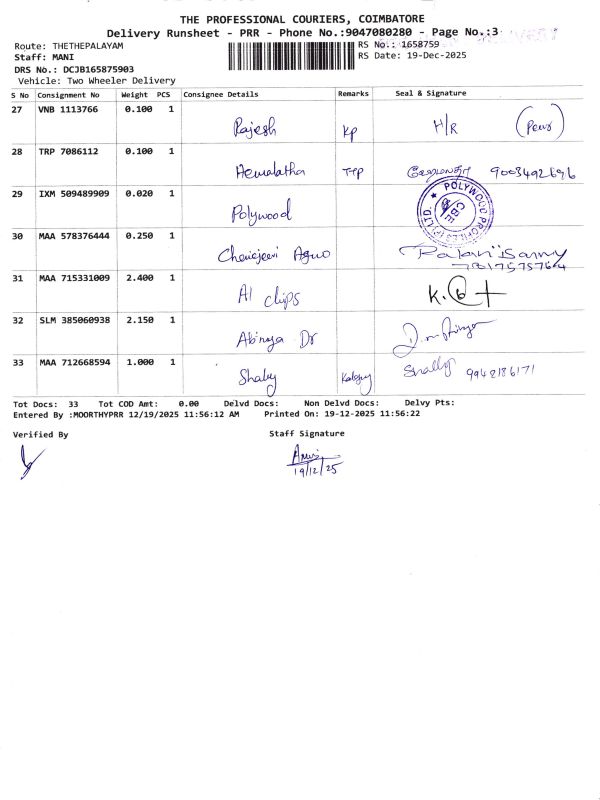 THE PROFESSIONAL COURIERS, COIMBATORE
Delivery Runsheet - PRR - Phone No.:9047080280 - Page No.:3
Route: THETHEPALAYAM
RS No.: 1658759
Staff: MANI
RS Date: 19-Dec-2025
DRS No.: DCJB165875903
Vehicle: Two Wheeler Delivery
S No Consignment No Weight PCS Consignee Details Remarks Seal & Signature
27 VNB 1113766 0.100 1 Rajesh Kp H/R
28 TRP 7086112 0.100 1 Hemalatha TTP ஹேமலதா 9003492696
29 IXM 509489909 0.020 1 Polywood
POLYWOOD PROFILES (P) LTD. ★ CBE
30 MAA 578376444 0.250 1
31 MAA 715331009 2.400 1 A1 chips
32 SLM 385060938 2.150 1 Dr
33 MAA 712668594 1.000 1 Shaby 9942186171
Tot Docs: 33 Tot COD Amt: 0.00 Delvd Docs: Non Delvd Docs: Delvy Pts:
Entered By :MOORTHYPRR 12/19/2025 11:56:12 AM Printed On: 19-12-2025 11:56:22
Verified By Staff Signature
19/12/25